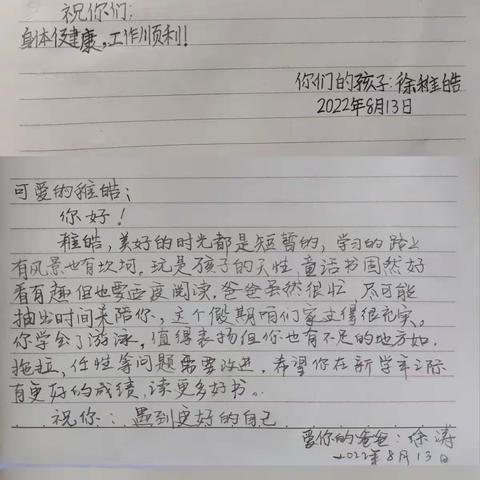 祝你们：
身体健康，工作顺利！
你们的孩子：徐稚皓
2022年8月13日
可爱的稚皓：
你好！
稚皓，美好的时光都是短暂的，学习的路上
有风景也有坎坷。玩是孩子的天性，童话书固然好
看有趣但也要适度阅读，爸爸虽然很忙 尽可能
抽出时间来陪你，这个假期咱们家过得很充实。
你学会了游泳，值得表扬但你也有不足的地方如，
拖拉，任性等问题需要改进，希望你在新学年之际
有更好的成绩，读更多好书。
祝你：遇到更好的自己
爱你的爸爸：徐涛
2022年8月13日